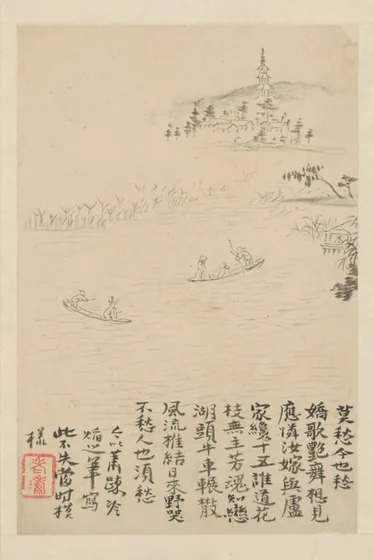 莫愁今也愁
嬌歌艷舞想見
應憐汝嫁與盧
家纔十五誰道花
枝無主芳魂知戀
湖頭牛車輾散
風流推結日來野哭
不愁人也須愁
今以蕭疎冷
焰之筆寫
此不失當時模
樣